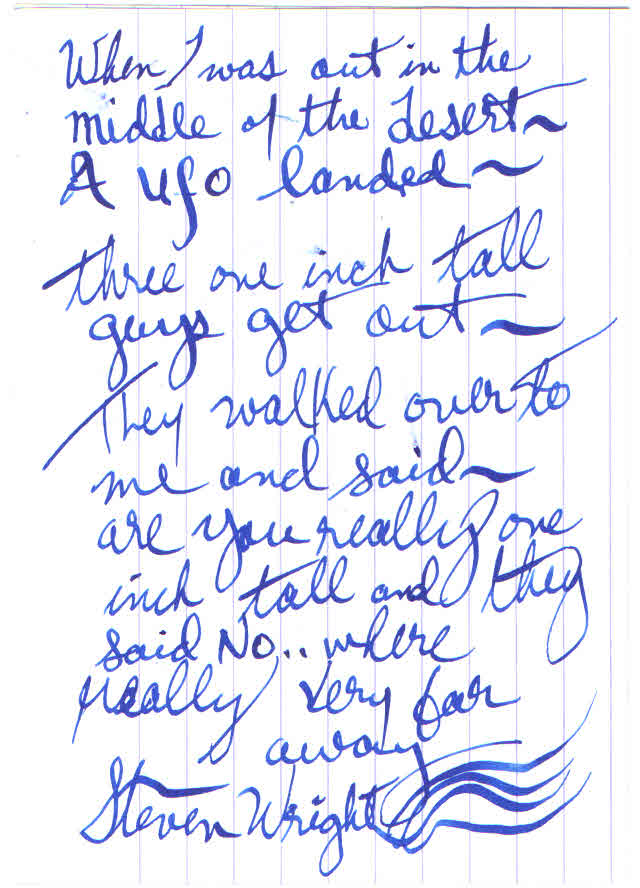 When I was out in the
middle of the desert~
A UFO landed~
three one inch tall
guys get out~
They walked over to
me and said~
are you really one
inch tall and they
said No.. where
really very far
away
Steven Wright